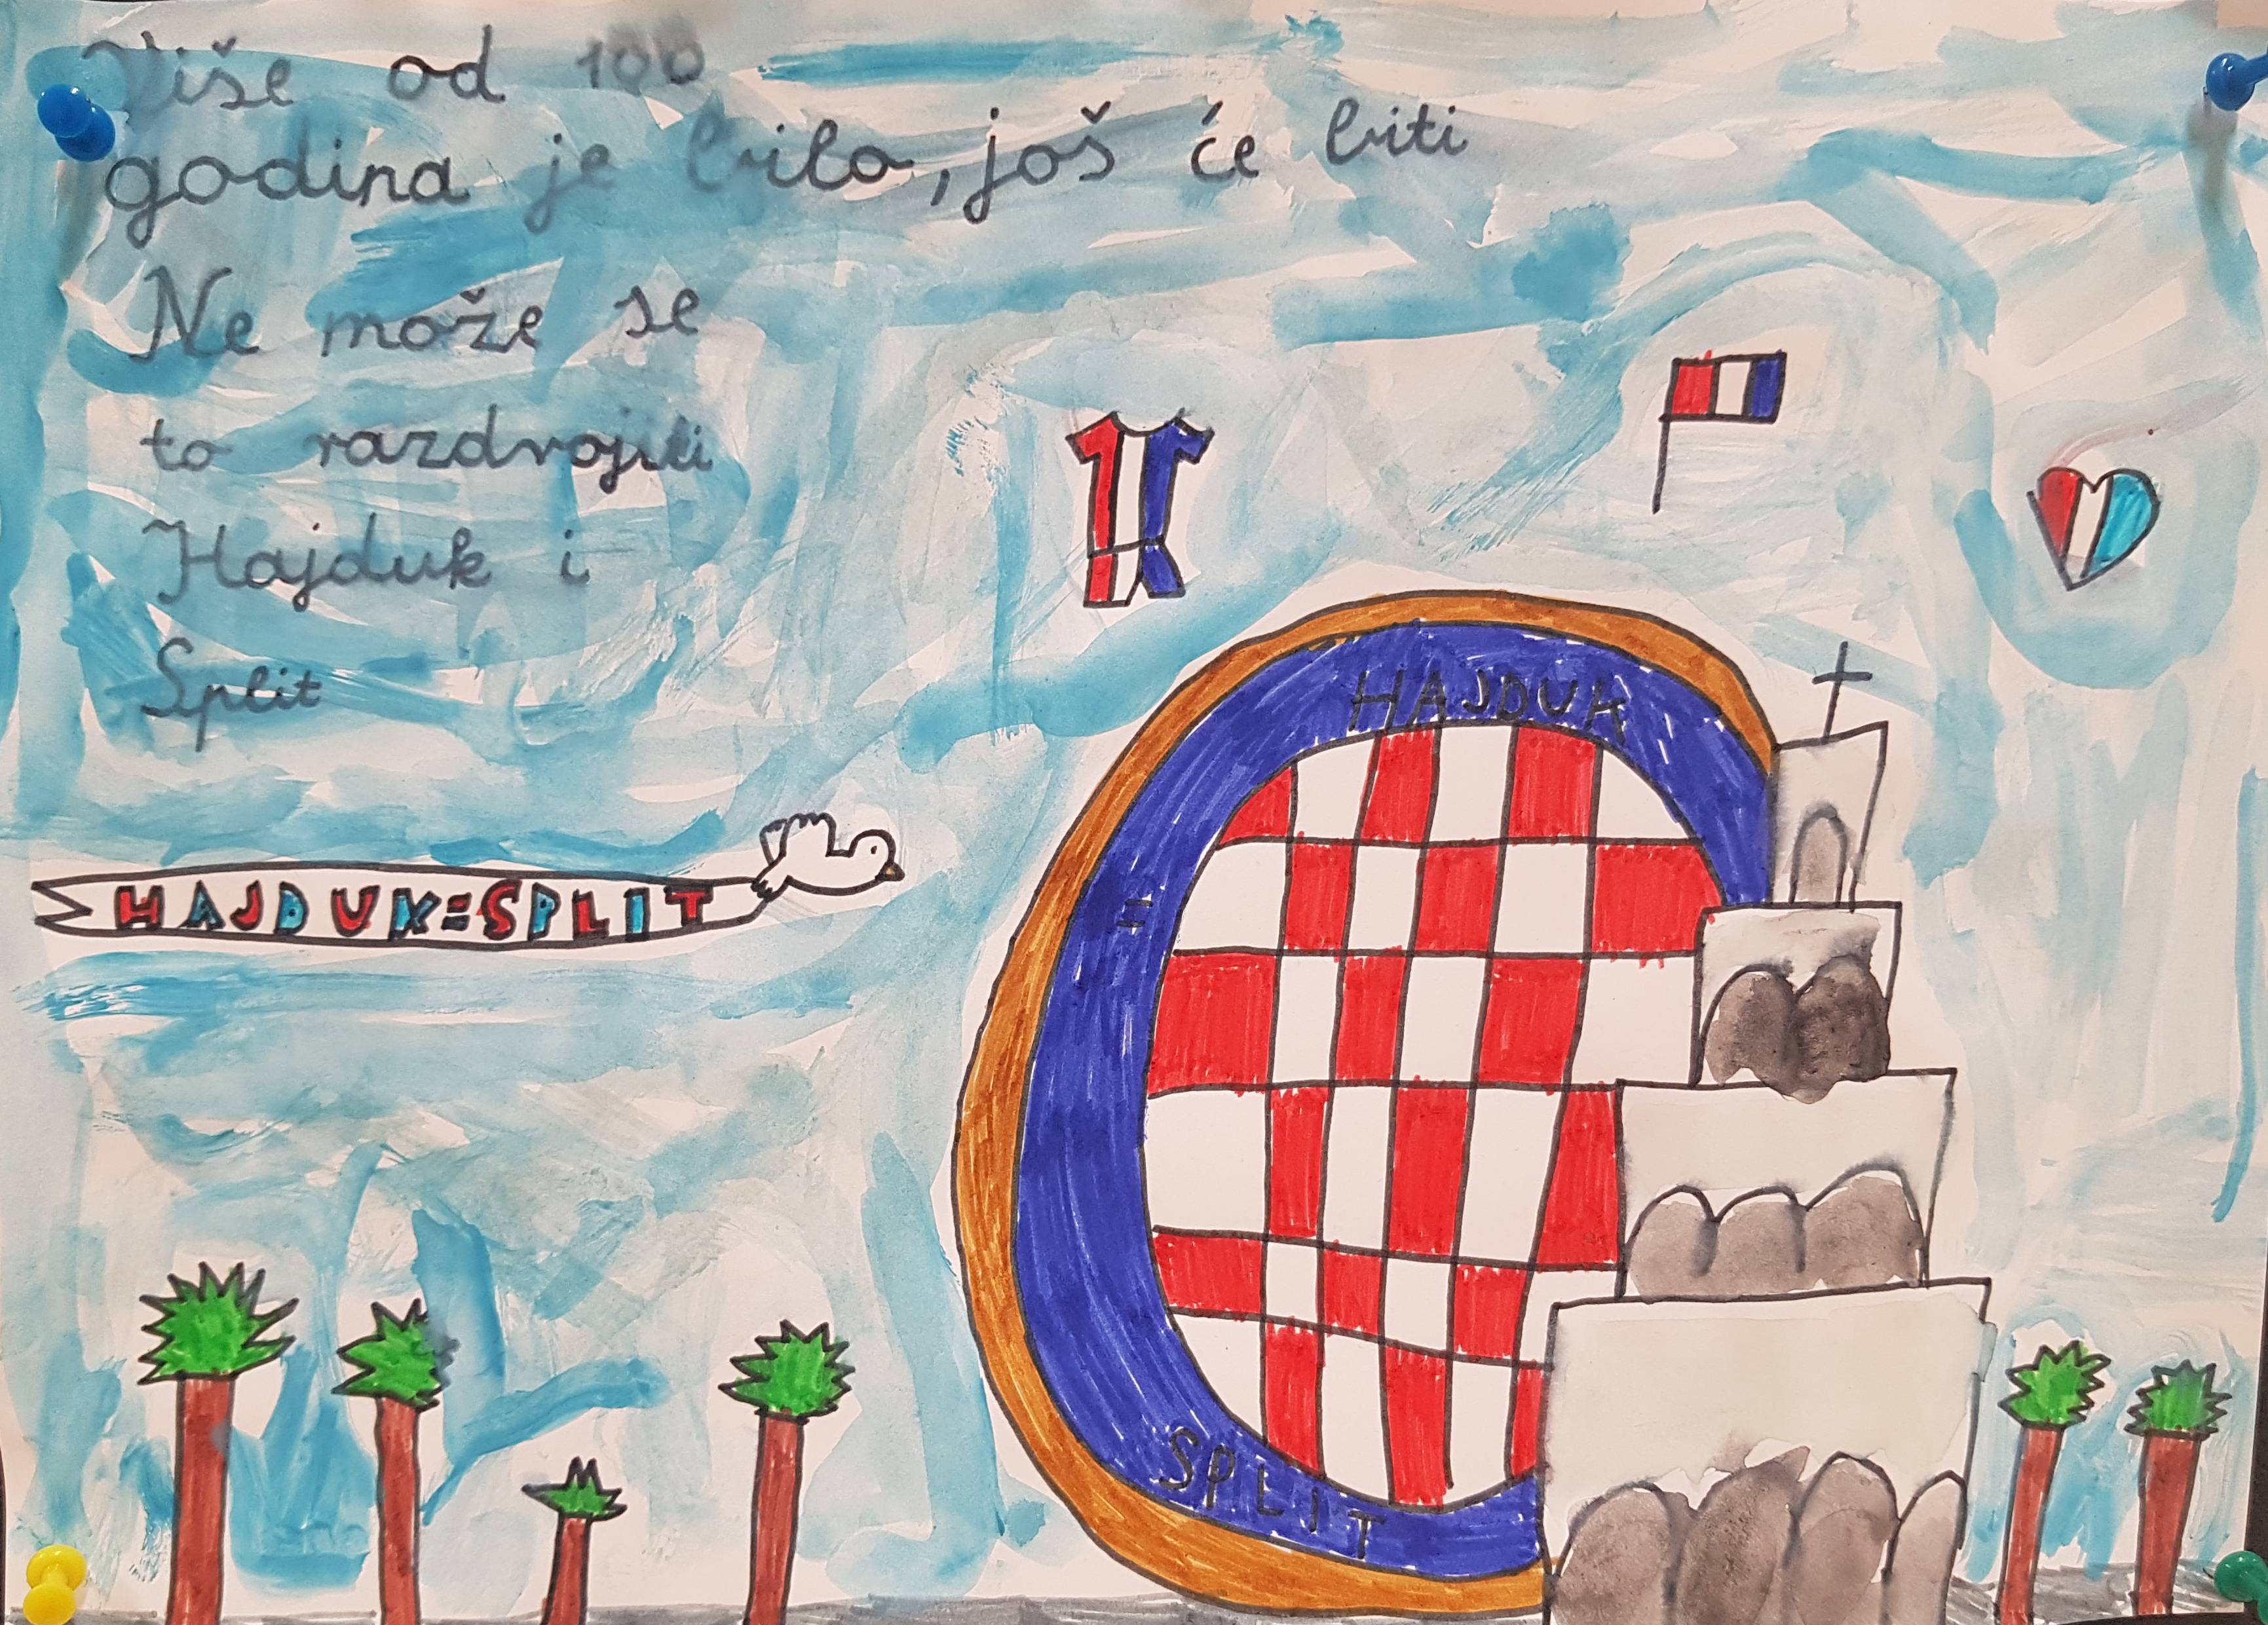 Više od 100
godina je bilo, još će biti
Ne može se
to razdvojiti
Hajduk i
Split
HAJDUK=SPLIT
HAJDUK
=
SPLIT